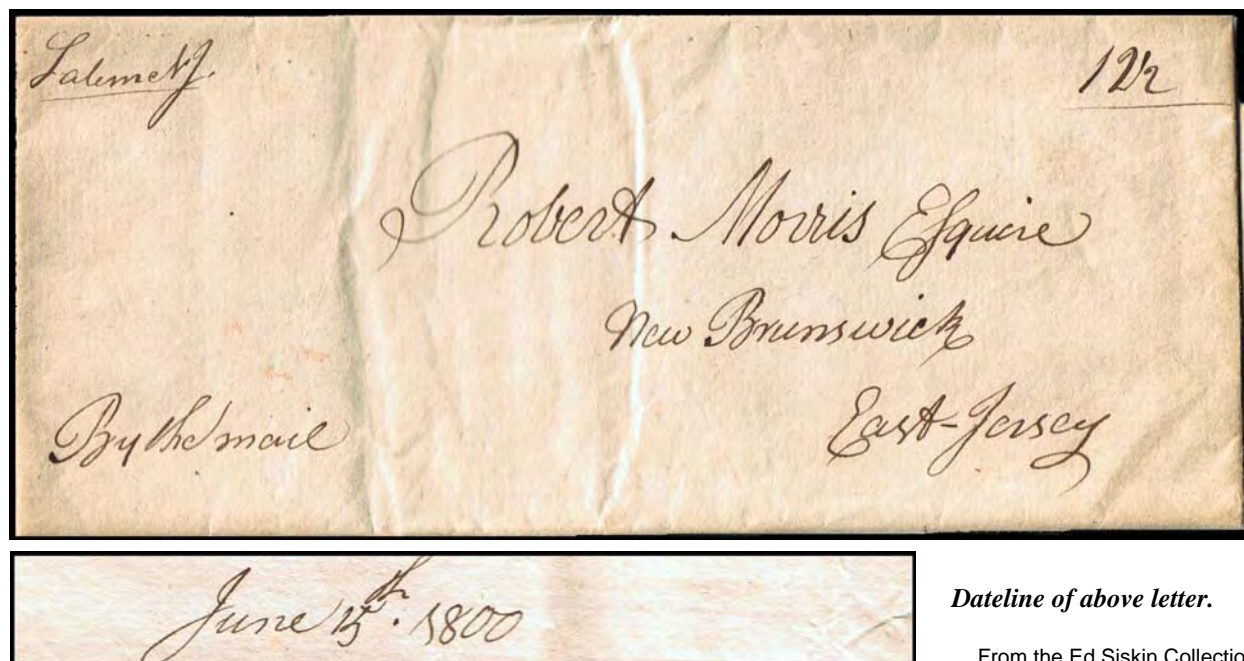 Salem NJ.
12½
Robert Morris Esquire
New Brunswick
East-Jersey
By the mail
June 15th. 1800
Dateline of above letter.
From the Ed Siskin Collection